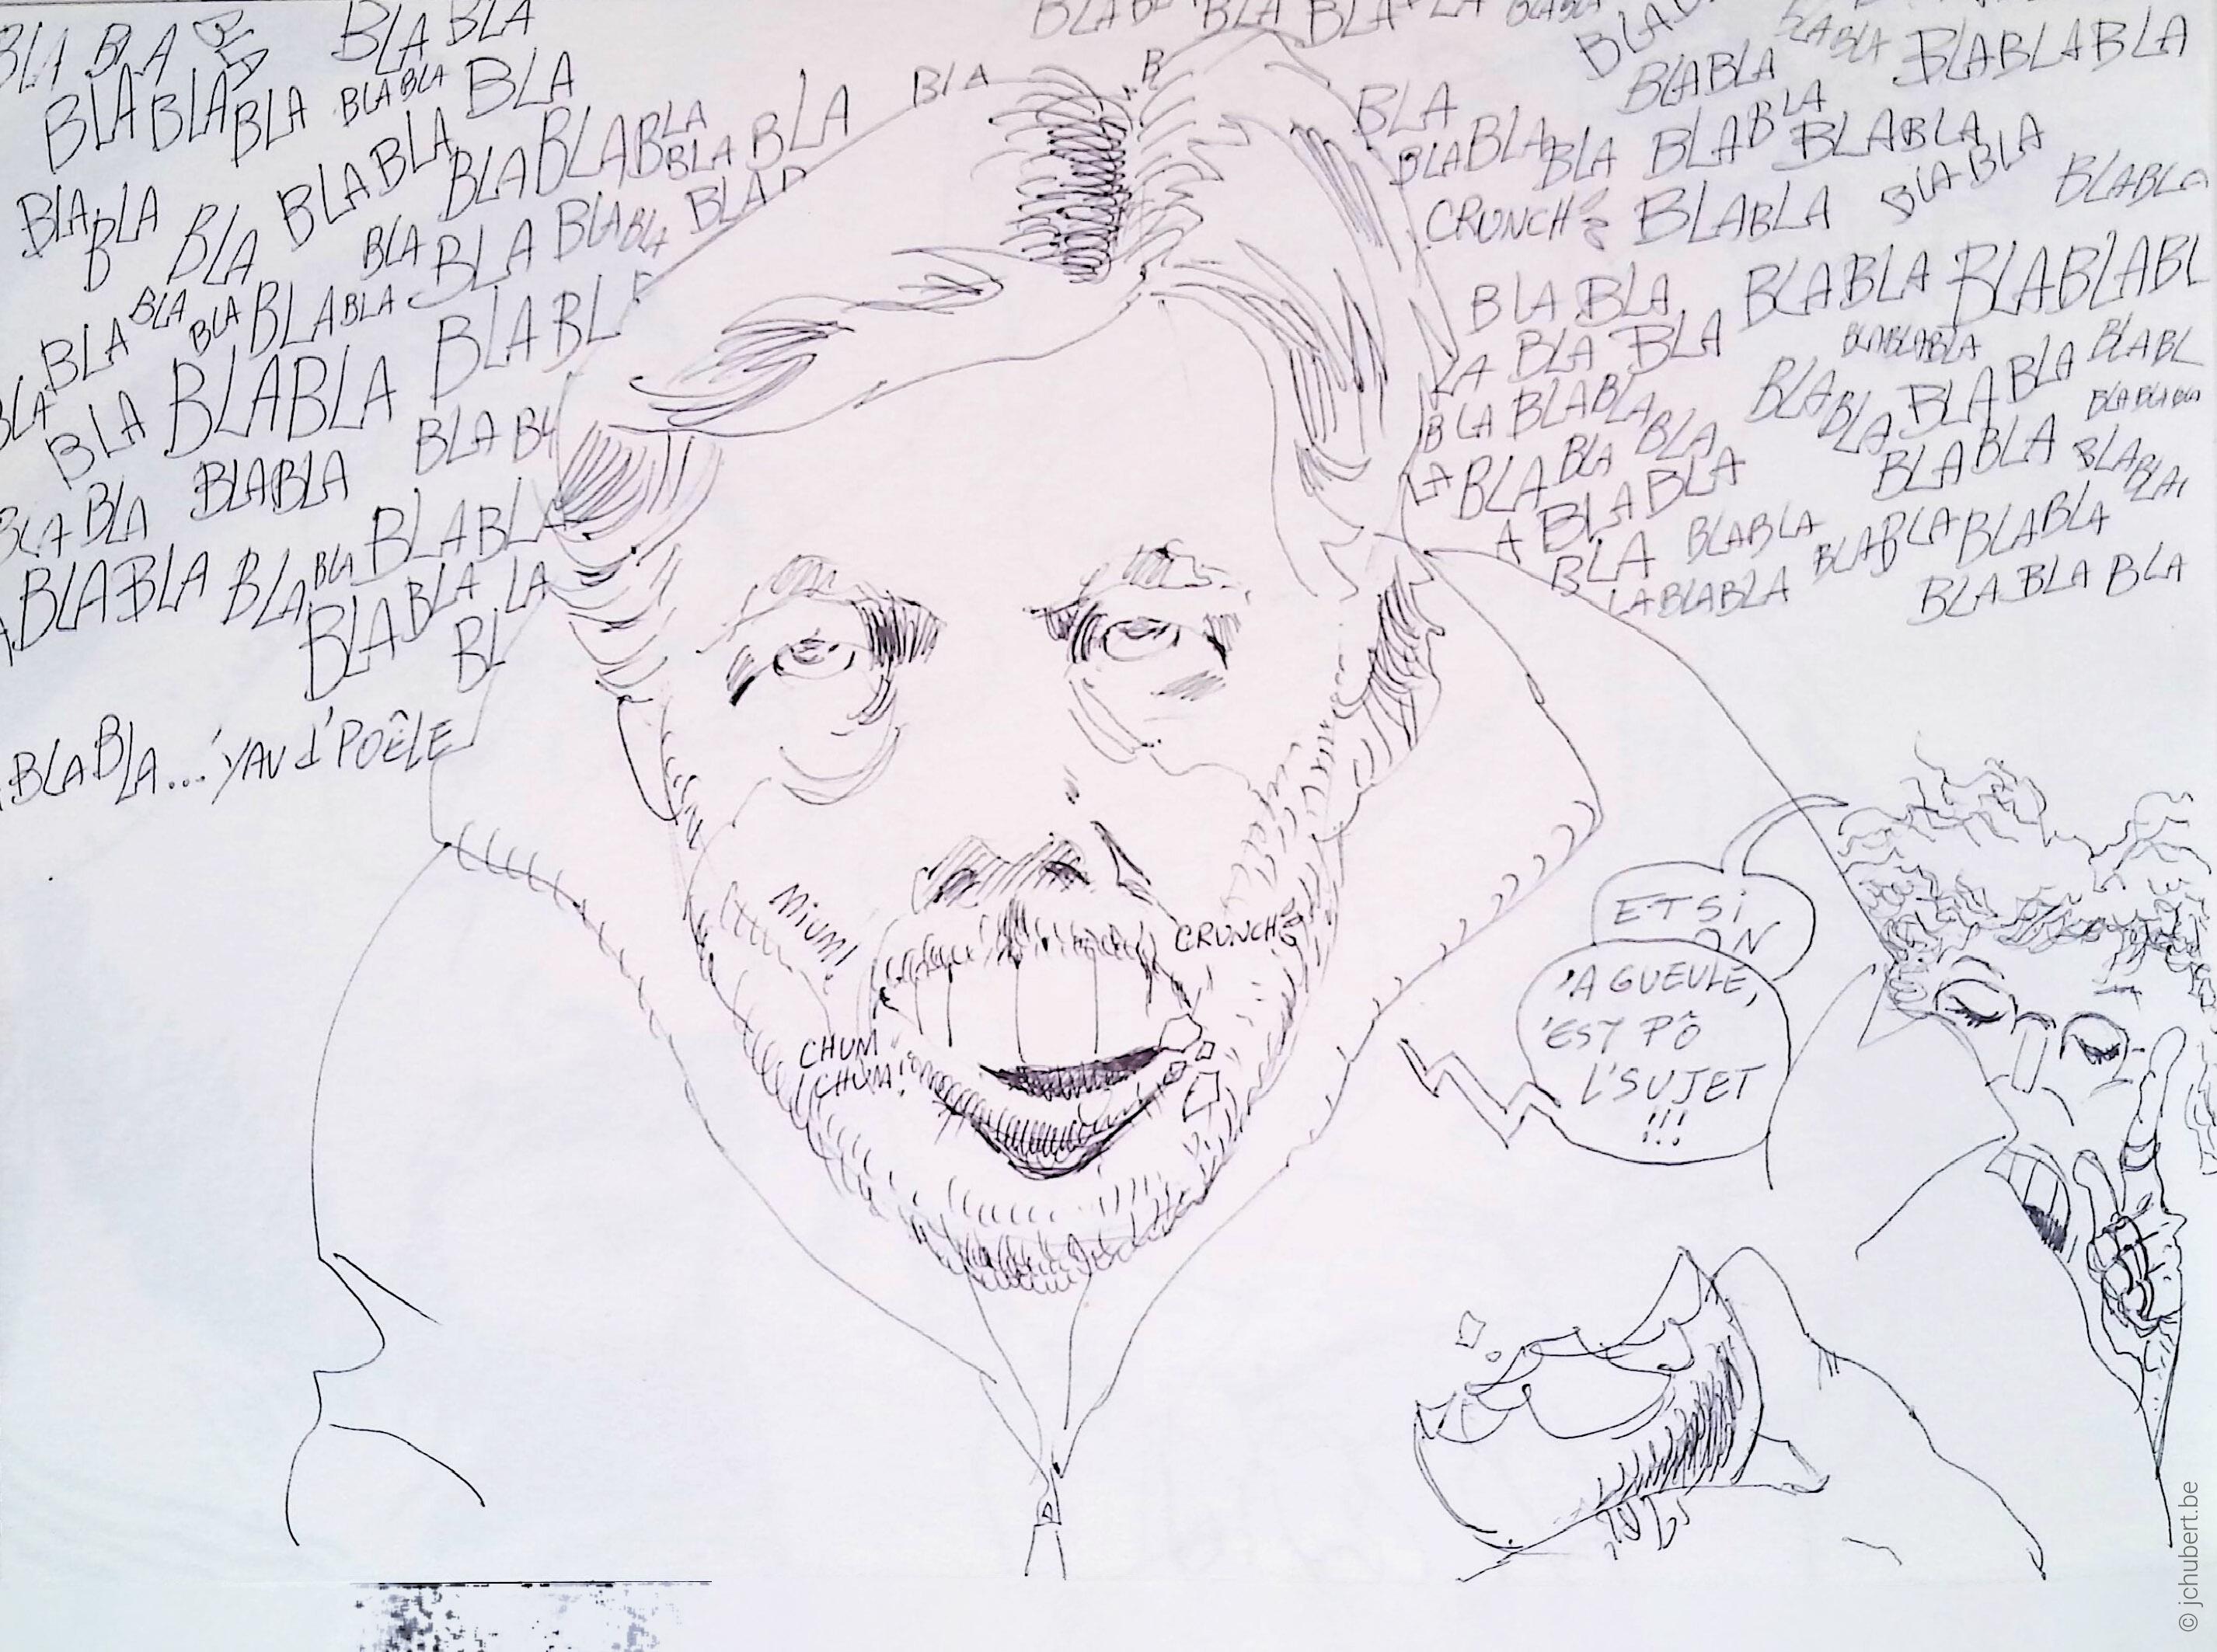 BLA BLA BLA BLA BLA
BLABLABLA BLABLA BLA
BLABLA BLA BLABLA BLABLABLA BLA BLA
BLA BLA BLA BLABLA
BLA BLA BLA BLABLA
BLA BLABLA BLABL
BLA BLA BLABLA BLA BL
BLABLA BLABLA BLABLA
BLABLA LA
BL
BLABLA...'YAV d'POÊLE
BLA
B
BLA BLA BLABLABLA
BLABLA
BLA BLABLA BLABLA
BLABLABLA BLABLA BLABLA BLABLA
CRUNCH BLABLA BLABLA BLABLA
BLA BLA BLABLA BLABLABL
LA BLA BLA BLABLABLA BLABL
BLA BLABLABLA BLABLA BLABLA BLABLABLA
LABLABLA BLABLA BLABLA
A BLABLA
BLA BLABLA BLABLA BLABLA
LABLABLA BLABLABLA
MIUM!
CRUNCH
CHUM
CHUM!
ETSi
ON
'A GUEULE,
'EST PÔ
L'SUJET
!!!
© jchubert.be